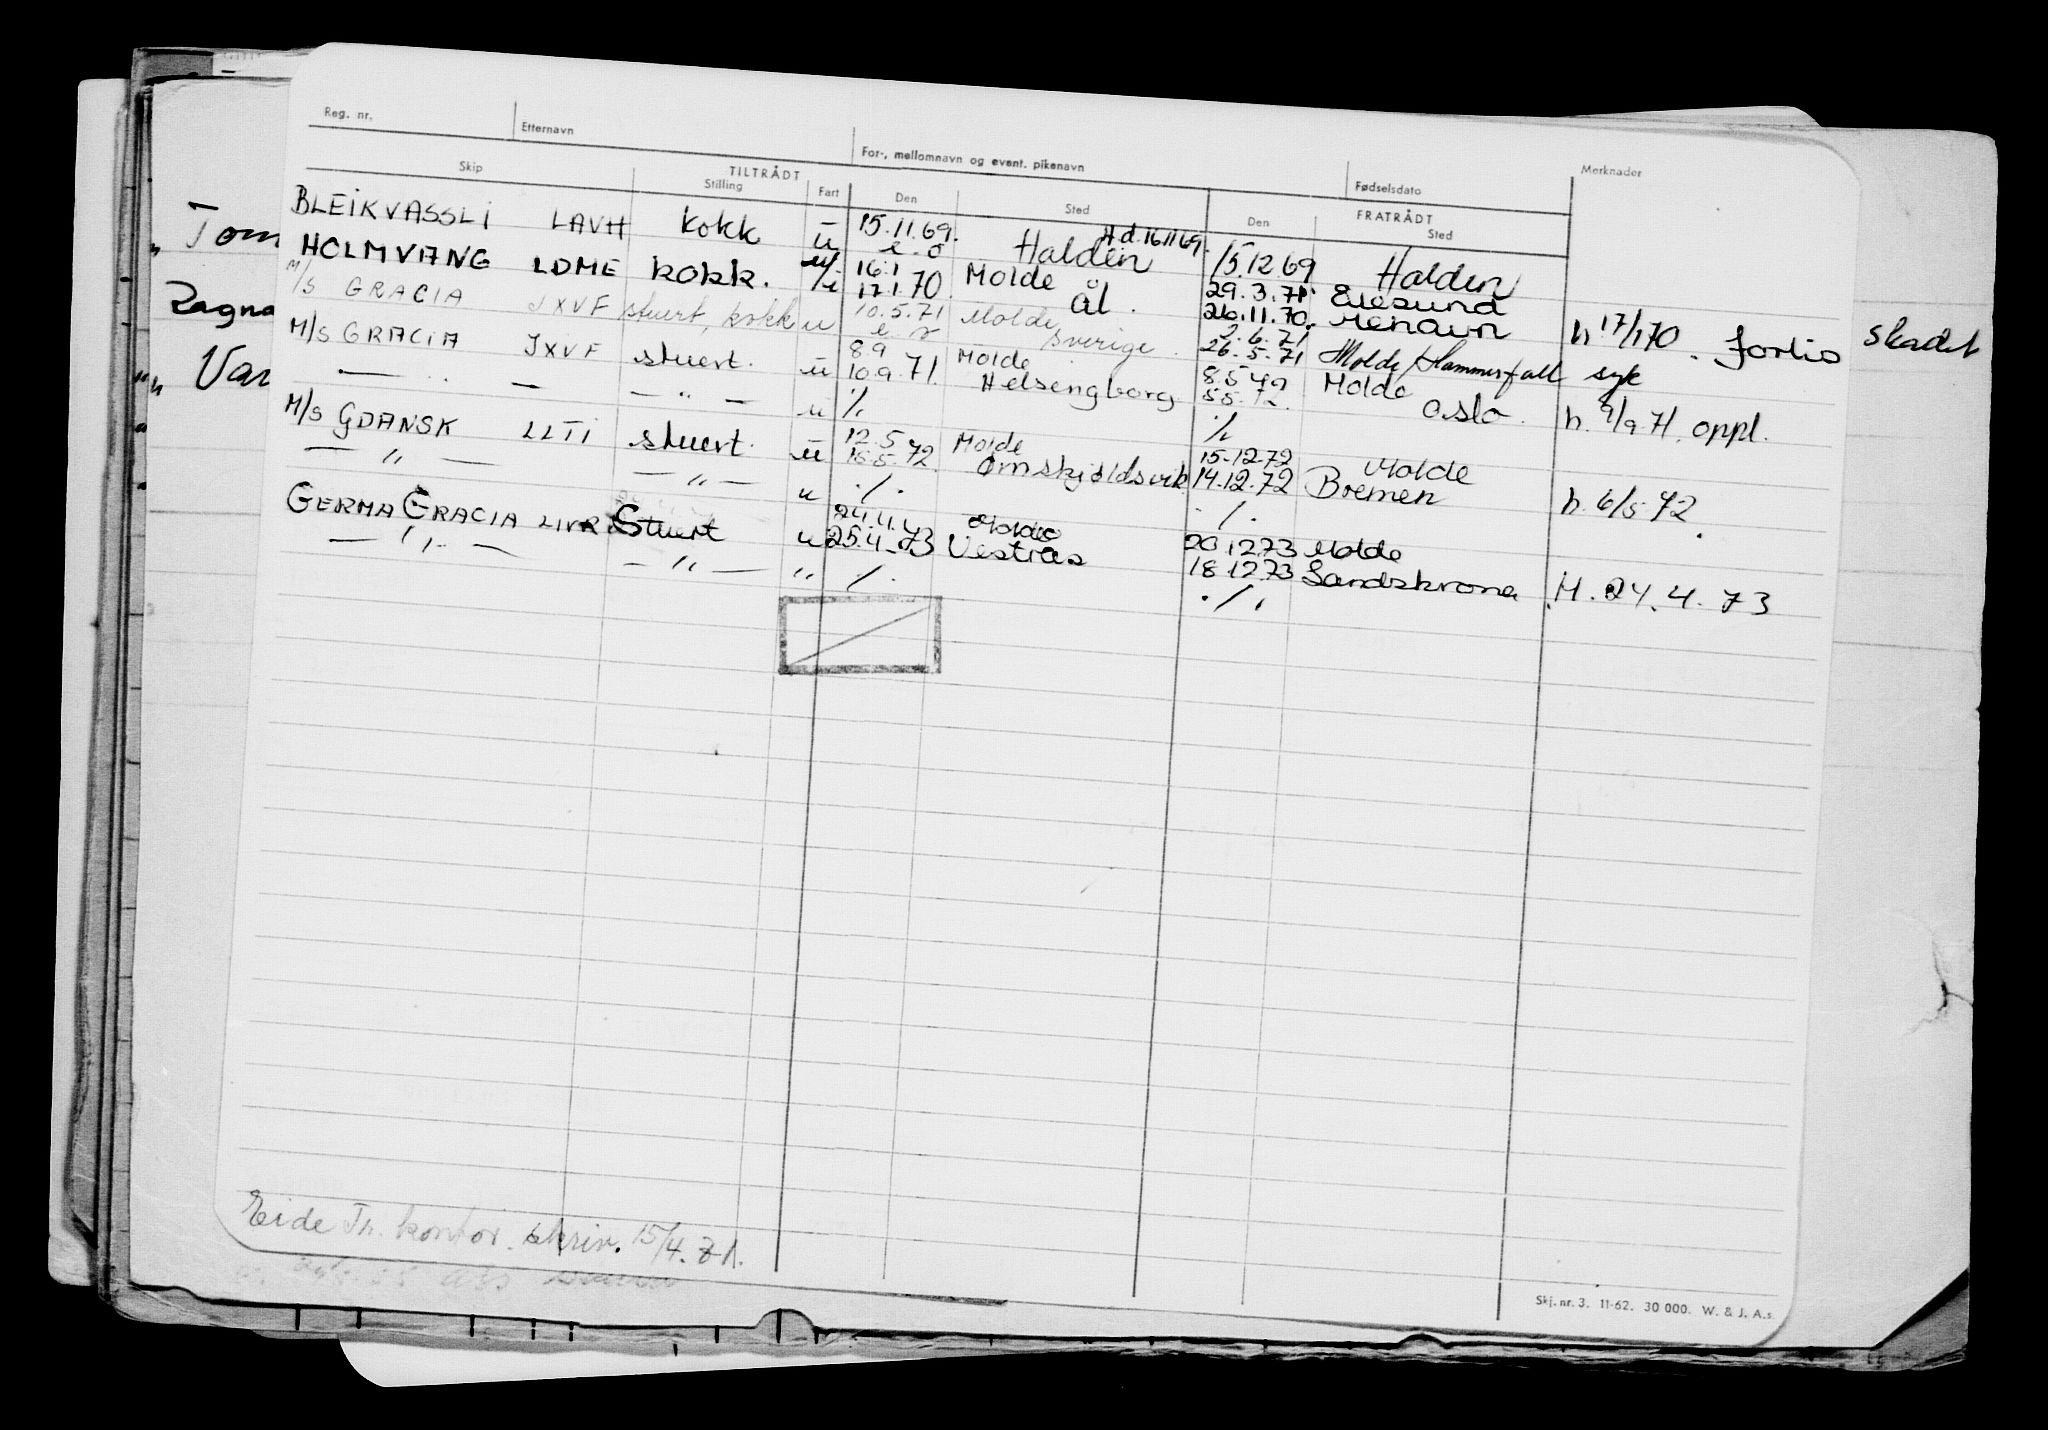 Reg. nr. Etternavn For-, mellomnavn og event. pikenavn Fødselsdato Merknader
Skip TILTRÅDT FRATRÅDT
Stilling Fart Den Sted Den Sted
BLEIKVASSLI LAVH kokk u 15.11.69. Halden H.d. 16.11.69. 15.12.69 Halden
e. o
HOLMVANG LDME kokk. u/i 16.1 Molde 29.3.71.
17.1.70 ål. 26.11.70. Menavn h 17/1 70. skadet
M/S GRACIA JXVF stuert, kokk u 10.5.71 Molde 2.6.71 Molde/Hammerfall syk
Sverige. 26.5.71
M/S GRACIA JXVF stuert. u 8.9 Molde 8.5.72 Molde
10.9.71. Helsengborg 5.5.72. Oslo. h. 9/9 71. oppl.
— — — " — u ./. ./.
M/S GDANSK LLTI stuert. u 12.5 Molde 15.12.72 Molde
16.5.72. Omskjoldsvik 14.12.72 Bremen h. 6/5 72.
— " — — " — u ./. ./.
GERMA GRACIA LIVR Stuert u 24.4.73 Molde 20.12.73 Molde
25.4.73 Vestras 18.12.73 Landskrona H. 24.4.73
— " — — " — " ./. ./.
Tom
Ragna
Var
Eide Tr. kontor. skriv. 15/4.71.
Skj. nr. 3. 11-62. 30 000. W. & J. A.s.